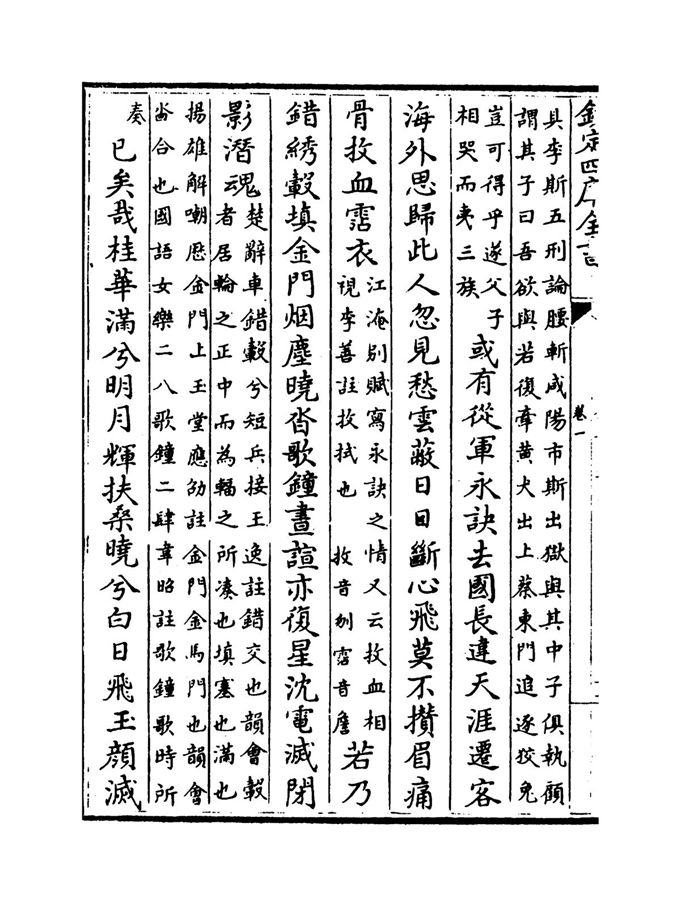 欽定四庫全書
卷一
具李斯五刑論腰斬咸陽市斯出獄與其中子俱執顧
謂其子曰吾欲與若復牽黃犬出上蔡東門追逐狡兔
豈可得乎遂父子
相哭而夷三族
或有從軍永訣去國長違天涯遷客
海外思歸此人忽見愁雲蔽日目斷心飛莫不攢眉痛
骨抆血霑衣
江淹別賦寫永訣之情又云抆血相
視李善註抆拭也 抆音刎霑音詹
若乃
錯綉轂填金門烟塵曉沓歌鐘晝諠亦復星沈電滅閉
影潛魂
楚辭車錯轂兮短兵接王逸註錯交也韻會轂
者居輪之正中而為輻之所湊也填塞也滿也
揚雄解嘲歷金門上玉堂應劭註金門金馬門也韻會
沓合也國語女樂二八歌鐘二肆韋昭註歌鐘歌時所
奏
已矣哉桂華滿兮明月輝扶桑曉兮白日飛玉顏滅